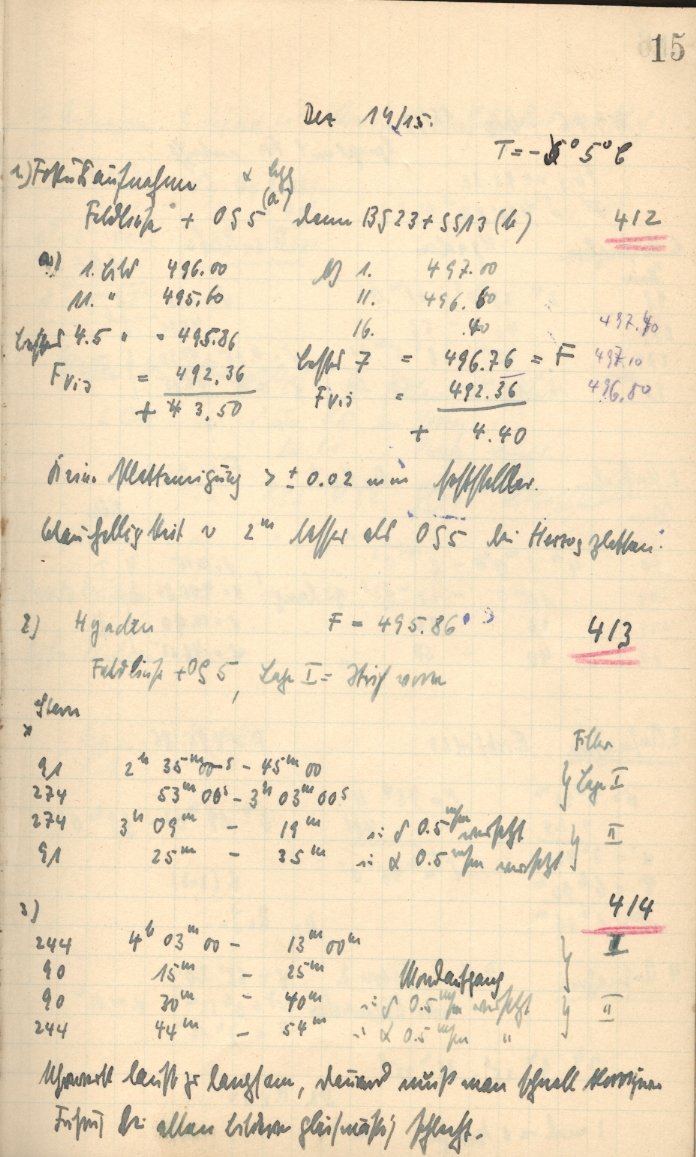 15
Dez 14/15.
T = -5° 5° C
1) Fokusaufnahmen α Lyg
Feldlinse + OG 5 (a) dann BG 23 + GG 13 (b) 412
a) 1. Bild 496.00 b) 1. 497.00
11. " 495.60 11. 496.60
16. .40 497.40
bestes 4.5 " = 495.86 bestes 7 = 496.76 = F 497.10
F vis = 492.36 F vis = 492.36 496.80
+ 3.50 + 4.40
Keine Plattenneigung > ± 0.02 mm feststellbar.
Blauhelligkeit ~ 2ᵐ besser als OG 5 bei Herzogplatten.
2) Hyaden F = 495.86 413
Feldlinse + OG 5, Lage I = Strich vorn
Stern
* Filter
91 2ʰ 35ᵐ 00ˢ - 45ᵐ 00 } Lage I
274 53ᵐ 00ˢ - 3ʰ 03ᵐ 00ˢ
274 3ʰ 09ᵐ - 19ᵐ in δ 0.5 ᵐ/m versetzt } II
91 25ᵐ - 35ᵐ in α 0.5 ᵐ/m versetzt
3) 414
244 4ʰ 03ᵐ 00 - 13ᵐ 00ᵐ } I
90 15ᵐ - 25ᵐ Mondaufgang
90 30ᵐ - 40ᵐ in δ 0.5 ᵐ/m versetzt } II
244 44ᵐ - 54ᵐ in α 0.5 ᵐ/m "
Uhrwerk läuft zu langsam, dauernd muß man schnell korrigieren
Fokus bei allen Bildern gleichmäßig schlecht.